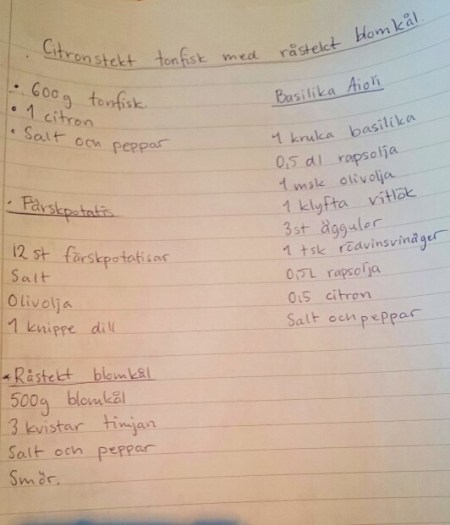 Citronstekt tonfisk med råstekt blomkål.
• 600g tonfisk.
• 1 citron
• Salt och peppar
• Färskpotatis
12 st färskpotatisar
Salt
Olivolja
1 knippe dill
• Råstekt blomkål
500g blomkål
3 kvistar timjan
Salt och peppar
Smör.
Basilika Aioli
1 kruka basilika
0,5 dl rapsolja
1 msk olivolja
1 klyfta vitlök
3st äggulor
1 tsk rödvinsvinäger
rapsolja
0,5 citron
Salt och peppar